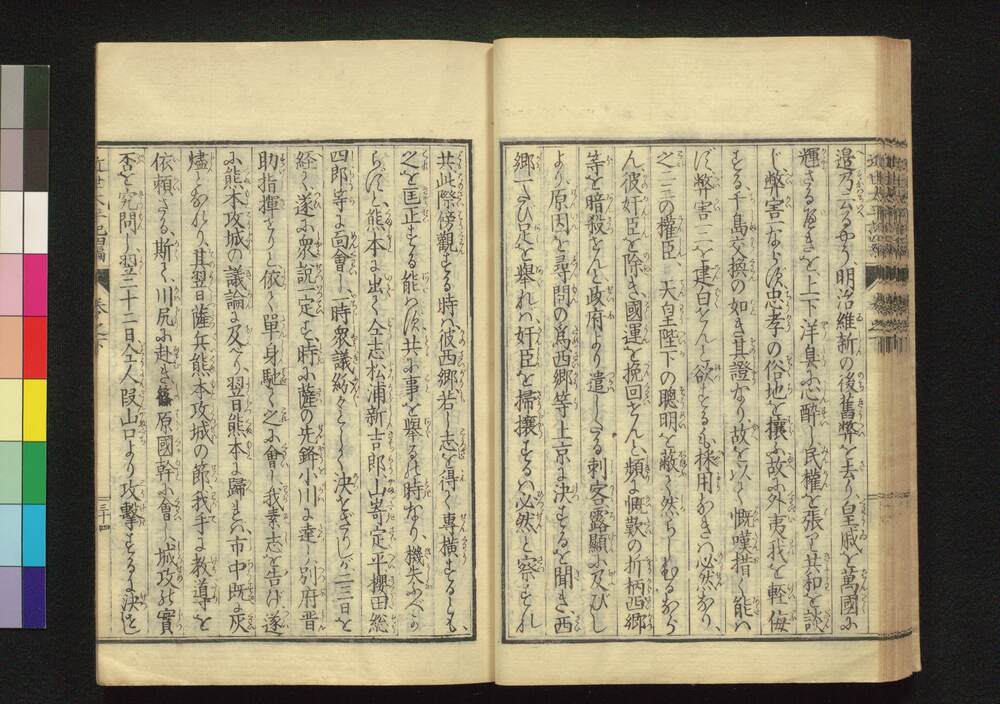 邉乃云るやう、明治維新の後舊弊を去り、皇威を萬國に
輝さるべきを、上下洋臭に心醉し民權を張り共和を談
じ、弊害一ならず、忠孝の俗地を攘ふ故に外夷我を輕侮
する、千島交換の如き其證なり、故を以て慨嘆措く能は
ず、弊害一二を建白せんと欲するも、採用なきは必然なり、
之二三の權臣、天皇陛下の聰明を蔽ひ然らしむるなら
ん彼奸臣を除き、國運を挽回せんと頻に慨歎の折柄西郷
等を暗殺せんと政府より遣したる刺客露顯に及びし
より、原因を尋問の爲西郷等上京に決するを聞き、西
郷一たび足を舉れば、奸臣を掃攘するは必然と察すれ
共此際傍觀する時は彼西郷若し志を得て專横するとも、
之を匡正する能はず共に事を舉るは時なり、機失ふべか
らずと熊本に出て仝志松浦新吉郎山嵜定平櫻田総
四郎等に面會し、一時衆議紛々として決せざりしが二三日を
経て、遂に衆説一定す、時に薩の先鋒小川に達し別府晋
助指揮せりと依て單身馳て之に會し我素志を告げ遂
に熊本攻城の議論に及べり、翌日熊本に歸れば市中既に灰
燼となれり、其翌日薩兵熊本攻城の節我手に教導を
依頼さる、斯て、川尻に赴き篠原國幹に會し、城攻の實
否を究問し翌二十二日仝人段山口より攻撃するに決す
近世太平記四編 巻之下 三十四